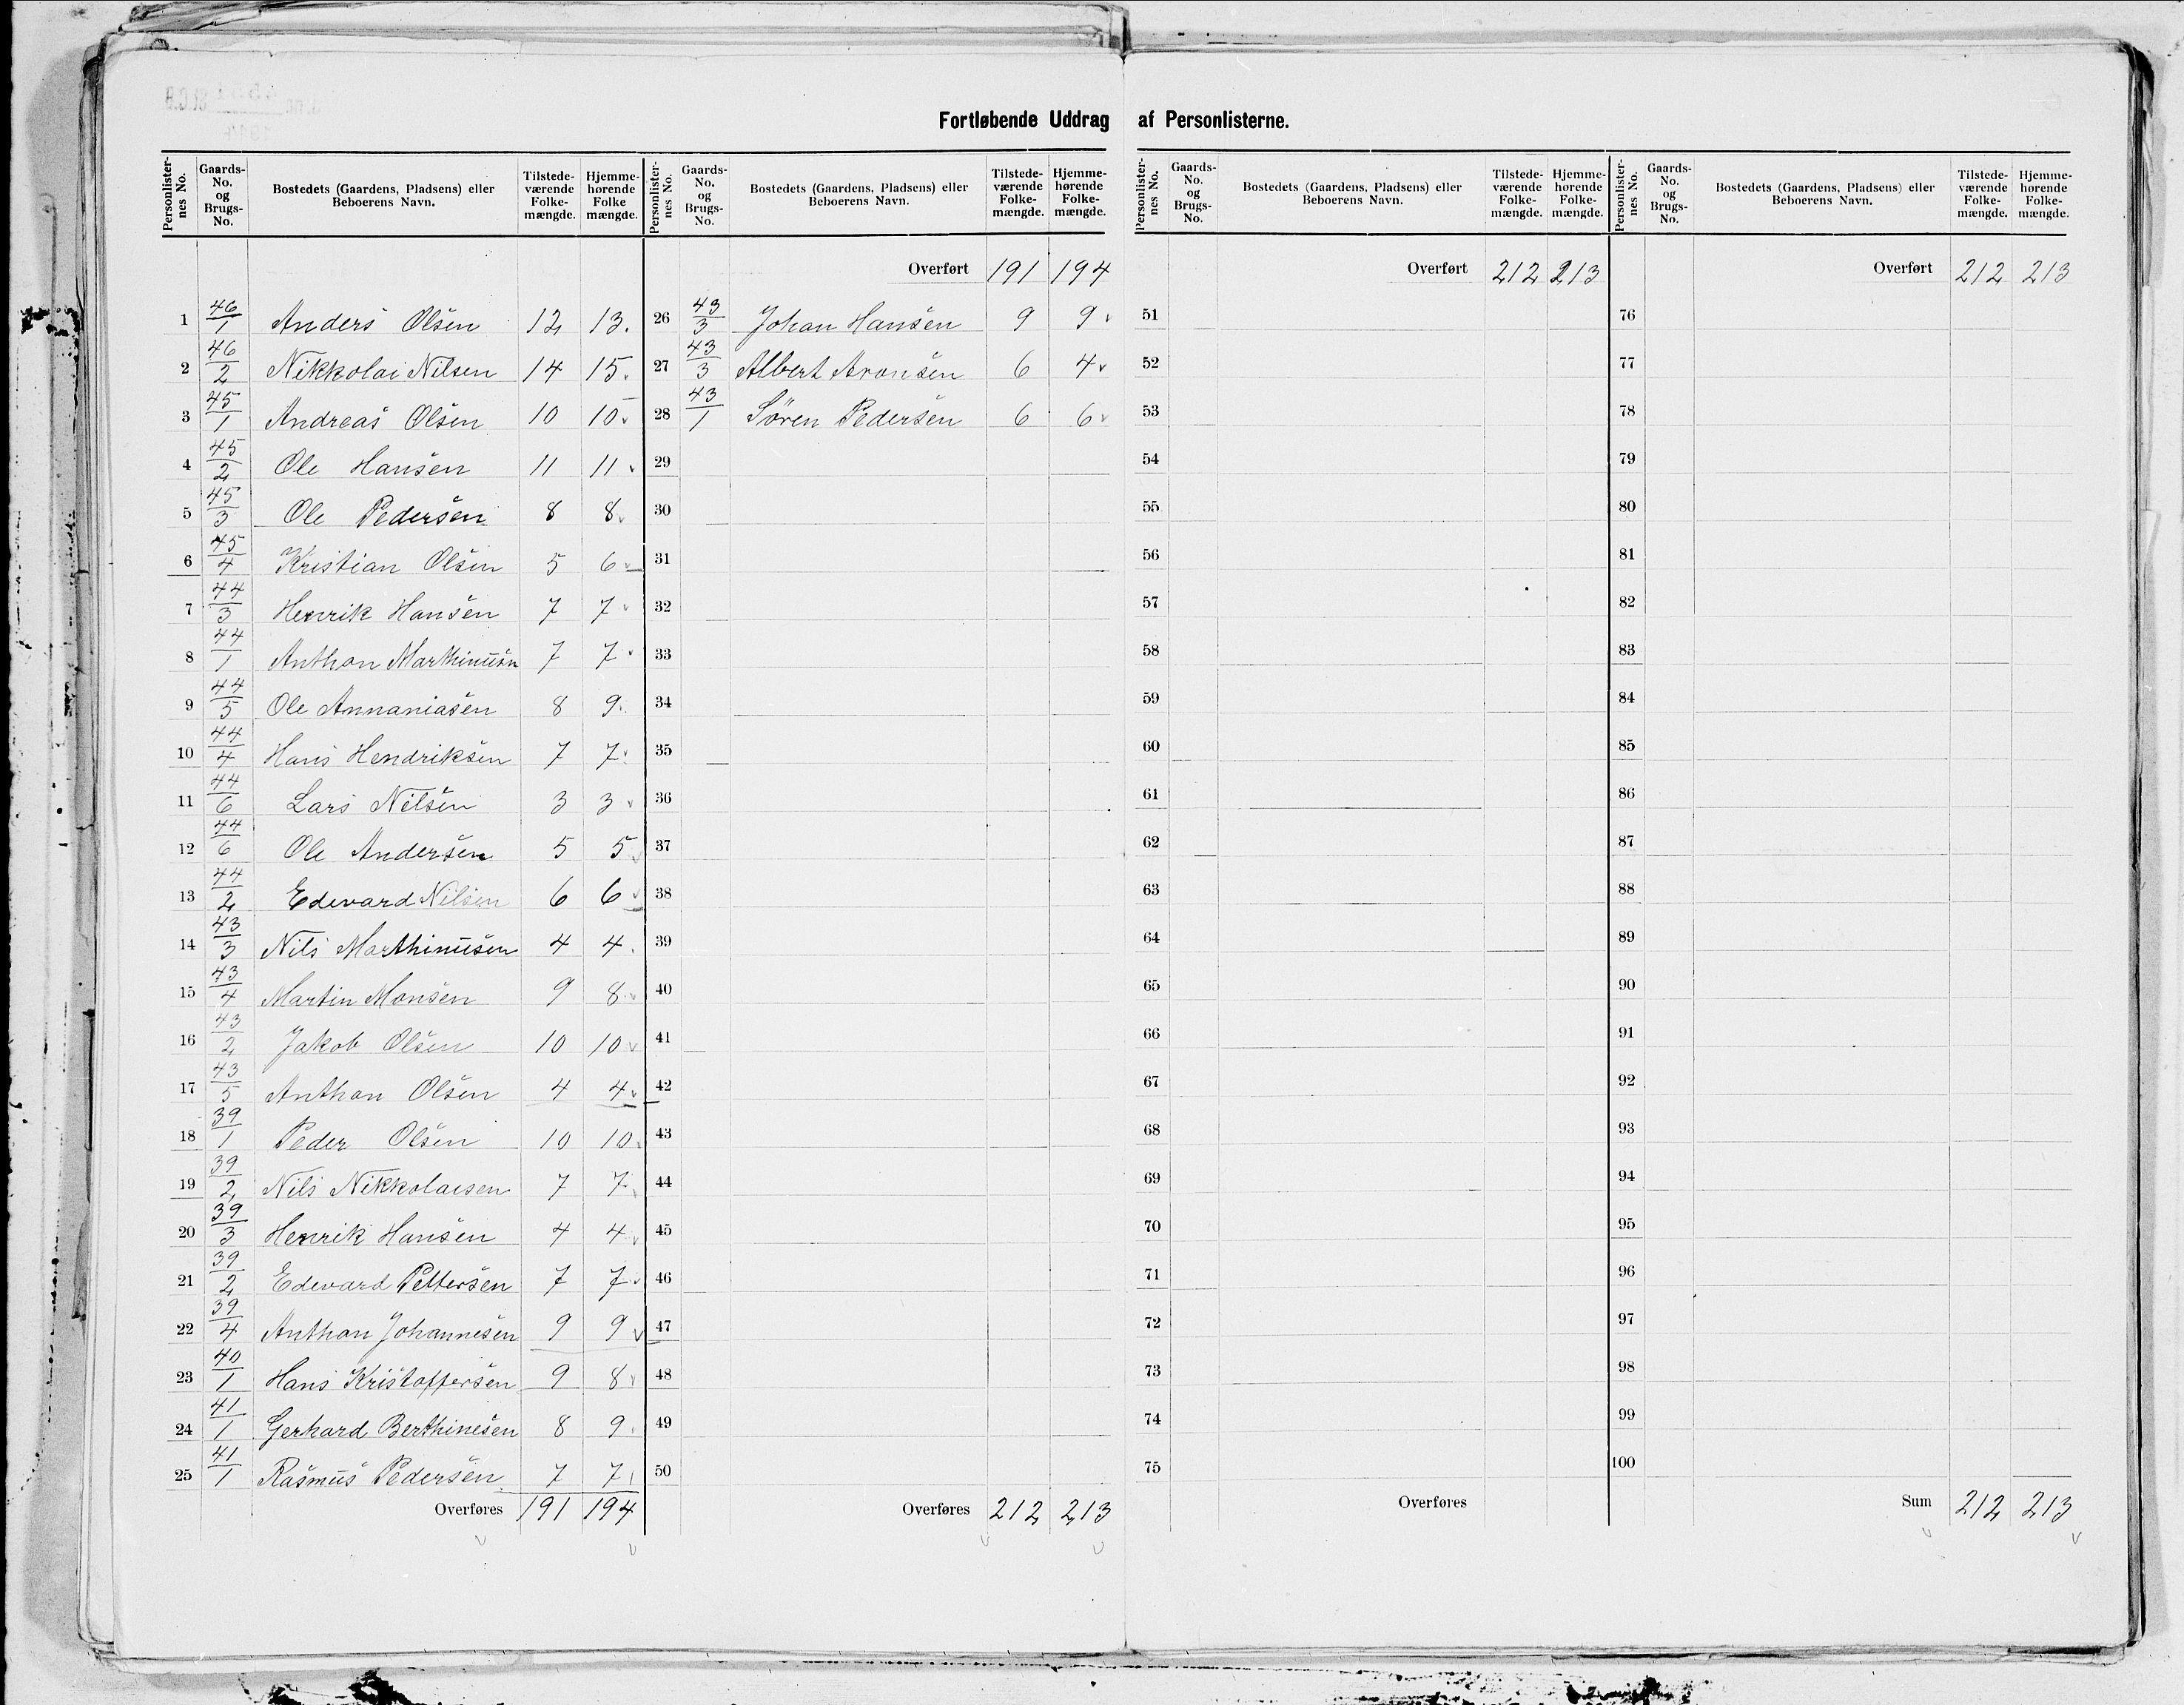 Fortløbende Uddrag af Personlisterne.
Personlisternes No. Gaards-No. og Brugs-No. Bostedets (Gaardens, Pladsens) eller Beboerens Navn. Tilstedeværende Folkemængde. Hjemmehørende Folkemængde.
1 46/1 Anders Olsen 12 13.
2 46/2 Nikkolai Nilsen 14 15.
3 45/1 Andreas Olsen 10 10
4 45/2 Ole Hansen 11 11
5 45/3 Ole Pedersen 8 8
6 45/4 Kristian Olsen 5 6
7 44/3 Henrik Hansen 7 7
8 44/1 Anthon Marthinusn 7 7
9 44/5 Ole Annaniasen 8 9.
10 44/4 Hans Hendriksen 7 7
11 44/6 Lars Nilsen 3 3
12 44/6 Ole Andersen 5 5
13 44/2 Edevard Nilsen 6 6
14 43/3 Nils Marthinusen 4 4.
15 43/4 Martin Monsen 9 8
16 43/2 Jakob Olsen 10 10
17 43/5 Anthon Olsen 4 4
18 39/1 Peder Olsen 10 10
19 39/2 Nils Nikkolaisen 7 7
20 39/3 Henrik Hansen 4 4
21 39/2 Edevard Pettersen 7 7
22 39/4 Anthon Johannesen 9 9
23 40/1 Hans Kristoffersen 9 8
24 41/1 Gerhard Berthinesen 8 9
25 41/1 Rasmus Pedersen 7 7
Overføres 191 194
Personlisternes No. Gaards-No. og Brugs-No. Bostedets (Gaardens, Pladsens) eller Beboerens Navn. Tilstedeværende Folkemængde. Hjemmehørende Folkemængde.
Overført 191 194
26 43/3 Johan Hansen 9 9
27 43/3 Albert Aronsen 6 4
28 43/1 Søren Pedersen 6 6
29
30
31
32
33
34
35
36
37
38
39
40
41
42
43
44
45
46
47
48
49
50
Overføres 212 213
Personlisternes No. Gaards-No. og Brugs-No. Bostedets (Gaardens, Pladsens) eller Beboerens Navn. Tilstedeværende Folkemængde. Hjemmehørende Folkemængde.
Overført 212 213
51
52
53
54
55
56
57
58
59
60
61
62
63
64
65
66
67
68
69
70
71
72
73
74
75
Overføres
Personlisternes No. Gaards-No. og Brugs-No. Bostedets (Gaardens, Pladsens) eller Beboerens Navn. Tilstedeværende Folkemængde. Hjemmehørende Folkemængde.
Overført 212 213
76
77
78
79
80
81
82
83
84
85
86
87
88
89
90
91
92
93
94
95
96
97
98
99
100
Sum 212 213